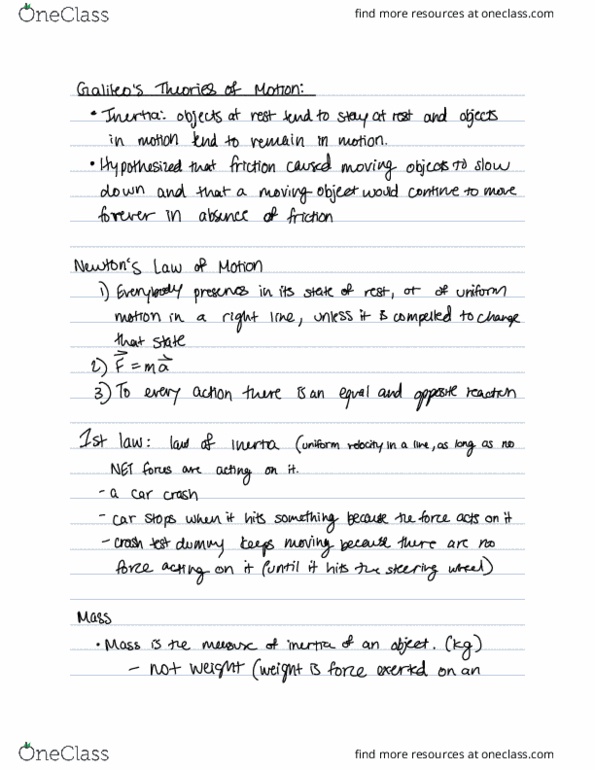 OneClass
find more resources at oneclass.com
Galileo's Theories of Motion:
• Inertia: objects at rest tend to stay at rest and objects
in motion tend to remain in motion.
• Hypothesized that friction caused moving objects to slow
down and that a moving object would continue to move
forever in absence of friction
Newton's Law of Motion
1) Everybody preserves in its state of rest, or of uniform
motion in a right line, unless it is compelled to change
that state
2) F⃗ = ma⃗
3) To every action there is an equal and opposite reaction
1st law: law of inertia (uniform velocity in a line, as long as no
NET forces are acting on it.
- a car crash
- car stops when it hits something because the force acts on it
- crash test dummy keeps moving because there are no
force acting on it (until it hits the steering wheel)
Mass
• Mass is the measure of inertia of an object. (kg)
- not weight (weight is force exerted on an
OneClass
find more resources at oneclass.com